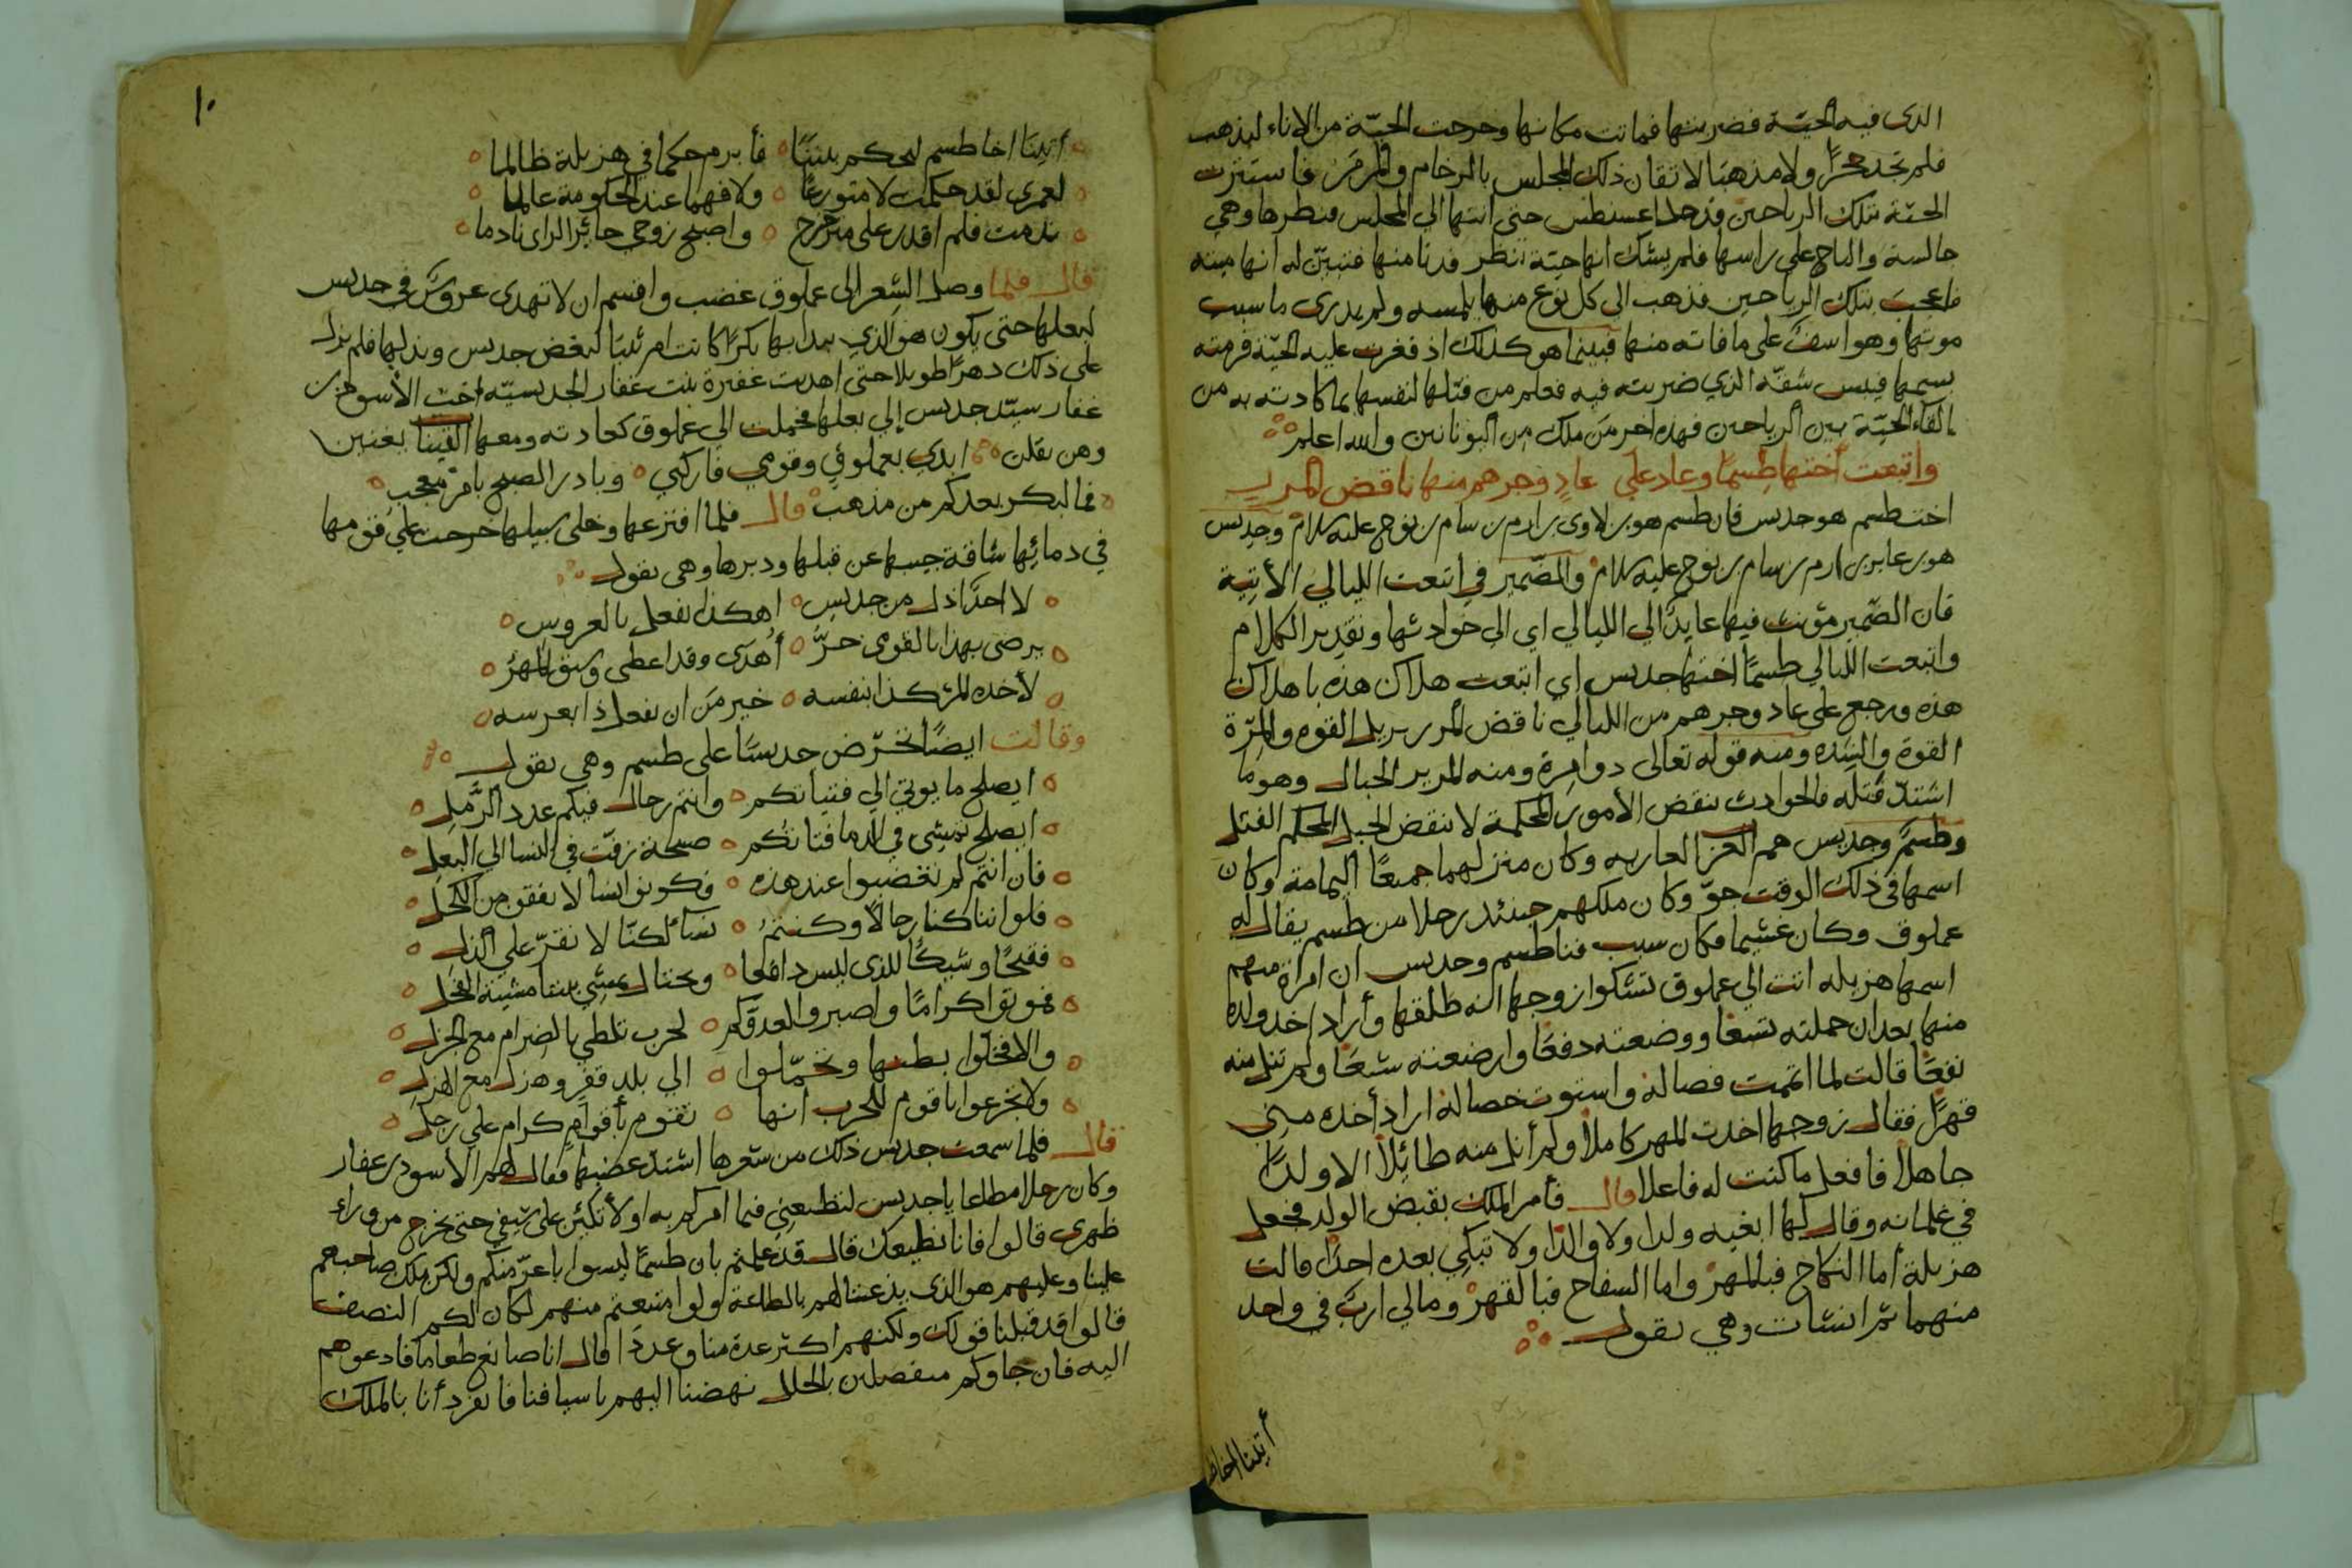 الذى فيه الحيّة فضربتها فماتت مكانها وخرجت الحيّة من الاناء ليذهب
فلم تجد مخرجًا ولا مذهبًا لاتقان ذلك المجلس بالرخام والمرمر فاستترت
الحيّة بتلك الرياحين فدخل اغسطس حتى انتهى الي المجلس فنظرها وهى
جالسة والتاج على راسها فلم يشك انها حيّة تنظر فدنا منها فتبيّن له انها ميته
فاعجب بتلك الرياحين فذهب الى كل نوع منها يلمسه ولم يدرى ما سبب
موتها وهو اسف على ما فاته منها فبينما هو كذلك اذ قفزت عليه الحيّة فرمته
بسمها فيبس شقّه الذي ضربته فيه فعلم من قتلها لنفسها بما كادته به من
القاء الحيّة بين الرياحين فهذه اخر من ملك من اليونانيين والله اعلم
واتبعت اختها طسمًا وعاد على عادٍ وجرهم منها ناقض المرر
اخت طسم هو جديس فان طسم هو بن لاوى بن ارم بن سام بن نوح عليه سلام وجديس
هو بن عابر بن ارم بن سام بن نوح عليه سلام والضمير في اتبعت الليالي الأتية
فان الضمير مؤنث فيها عايد الي الليالي اي الي حوادثها وتقدير الكلام
واتبعت الليالي طسمًا اختها جديس اي اتبعت هلاك هذه باهلاك
هذه ورجع على عاد وجرهم من الليالي ناقض المرر يريد القوه والمرّة
القوة والشده ومنه قوله تعالى ذو امرة ومنه المرير الحبال وهو ما
اشتدّ فتله فالحوادث تنقض الأمور المحكمة لا تنقض الحبل المحكم الفتل
وطسم وجديس هم العرب العاربه وكان منزلهما جميعًا اليمامة وكان
اسمها في ذلك الوقت جوّ وكان ملكهم حينئذ رجلا من طسم يقال له
عملوق وكان غشيما فكان سبب فنا طسم وجديس ان امراة منهم
اسمها هزيله اتت الي عملوق تشكوا زوجها انه طلقها وأراد اخذ ولده
منها بعد ان حملته تسعًا ووضعته دفعًا وارضعته شبعًا ولم تنل منه
نفعًا قالت لما اتممت فصاله واستوت خصاله اراد أخذه مني
قهرًا فقال زوجها اخذت المهر كاملاً ولم أنل منه طائلاً الا ولدًا
جاهلا فافعل ما كنت له فاعلا قال فأمر الملك بقبض الولد فجعل
في غلمانه وقال لها ابغيه ولدا ولا والدا ولا تبكي بعده احدًا قالت
هزيلة أما النكاح فبالمهر واما السفاح فبالقهر ومالي ارب في واحد
منهما ثم انشات وهي تقول
أتينا اخا طـ
١٠
أتينا اخا طسم ليحكم بيننا فأبرم حكما في هزيلة ظالما
لعمرى لقد حكمت لا متورعًا ولا فهما عند الحكومة عالما
ندمت فلم اقدر على متزحزح واصبح زوجي حائر الراى نادما
قال فلما وصل الشعر الى عملوق غضب واقسم ان لا تهدى عروسٌ في جديس
لبعلها حتى يكون هو الذي يبدا بها بكرًا كانت ام ثيبًا لبغض جديس ويذلها فلم يزل
على ذلك دهرًا طويلا حتى اهديت عفيرة بنت غفار الجديسيّه اخت الأسود بن
غفار سيّد جديس إلي بعلها فحملت الي عملوق كعادته ومعها القينات يغنين
وهن يقلن ابدي بعملوقٍ وقومي فاركبي وبادر الصبح بامر معجب
فما لبكر بعدكم من مذهب قال فلما افترعها وخلى سبيلها خرجت على قومها
في دمائها شاقة جيبها عن قبلها ودبرها وهى تقول
لا احدًا ذل من جديس اهكذا يفعل بالعروس
يرضى بهذا يالقومى حرُّ أهدى وقد اعطى وسيق المهرُ
لأخذه المر كذا بنفسه خير من ان يفعل ذا بعرسه
وقالت ايضًا تحرّض جديسًا على طسم وهي تقول
ايصلح ما يوتي الي فتياتكم وانتم رجال فيكم عدد الرَّملِ
ايصلح تمشى في الدما فتاتكم صبيحة زفّت في النسا الي البعل
فان انتم لم تغضبوا عند هذه فكونوا نسا لا نفقو من الكحل
فلو اننا كنا رجالاً وكنتمُ نسآ لكنّا لا نقرّ على الذل
فقبحًا وشيكًا للذى ليس دافعا ويختال يمشي بيننا مشية الفحل
فموتوا كرامًا واصبروا لعدوّكم لحرب تلظي بالضرام مع الجزل
والا فخلّوا بطنها وتحمّلوا الي بلد قفرٍ وهزل مع الهزل
ولا تجزعوا يا قوم للحرب انها تقوم بأقوامٍ كرام على رجل
قال فلما سمعت جديس ذلك من شعرها اشتدّ غضبها فقال لهم الأسود بن غفار
وكان رجلا مطاعا يا جديس لتطيعنى فيما امركم به او لأتكئن على سيفي حتى يخرج من وراء
ظهرى قالوا فانا نطيعك قال قد علمتم بان طسمًا ليسوا باعزّ منكم ولكن ملك صاحبهم
علينا وعليهم هو الذى يذعننا لهم بالطاعة ولو امتنعتم منهم لكان لكم النصف
قالوا قد قبلنا قولك ولكنهم اكثر عدة منا وعددًا قال انا صانع طعاما فادعوهم
اليه فان جاوكم متفضلين بالحلل نهضنا اليهم باسيافنا فانفرد أنا بالملك